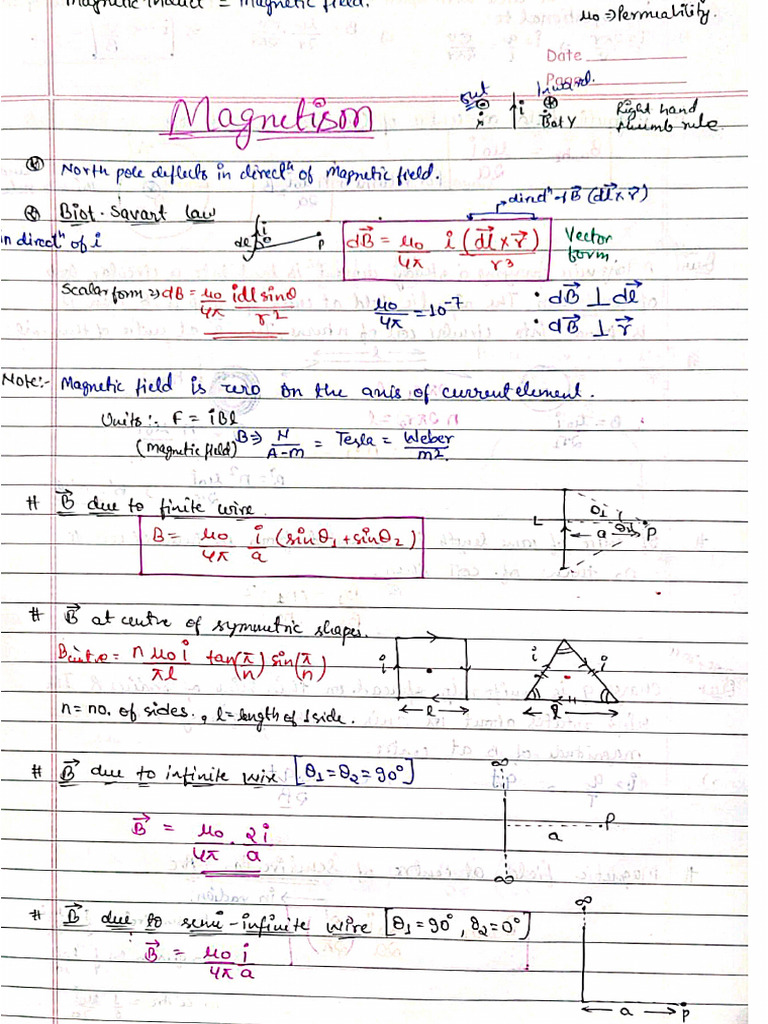 Magnetic Induct = Magnetic field.
μ0 ⇒ Permeability.
Date
Page
Magnetison
out
Inward.
i
Right hand
thumb rule
North pole deflects in directⁿ of Magnetic field.
Biot-Savart law
in directⁿ of i
dl
i
θ
P
dB⃗ = μ0/4π i(dl⃗ × r⃗)/r³
directⁿ of B⃗ (dl⃗ × r⃗)
Vector
form.
Scalar form ⇒ dB = μ0/4π idl sinθ/r²
μ0/4π = 10⁻⁷
• dB⃗ ⊥ dl⃗
• dB⃗ ⊥ r⃗
Note:- Magnetic field is zero on the axis of current element.
Units:- F = iBl
(magnetic field) B ⇒ N/A-m = Tesla = Weber/m².
# B⃗ due to finite wire
B = μ0/4π i/a (sinθ1 + sinθ2)
L
θ1
θ2
a
P
# B⃗ at centre of symmetric shapes.
Bcentre = nμ0i/πl tan(π/n) sin(π/n)
i
l
i
i
l
n = no. of sides., l = length of 1 side.
# B⃗ due to infinite wire [θ1 = θ2 = 90°]
B⃗ = μ0/4π · 2i/a
∞
P
a
∞
# B⃗ due to semi-infinite wire [θ1 = 90°, θ2 = 0°]
B⃗ = μ0 i/4π a
∞
a
P